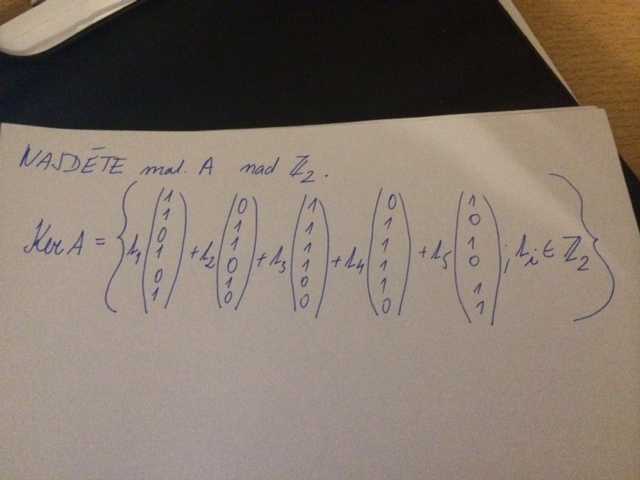 NAJDĚTE mat. A nad ℤ₂.
Ker A = { t₁ (1 1 0 1 0 1) + t₂ (0 1 1 0 1 0) + t₃ (1 1 1 1 0 0) + t₄ (0 1 1 1 1 0) + t₅ (1 0 1 0 1 1) ; tᵢ ∈ ℤ₂ }